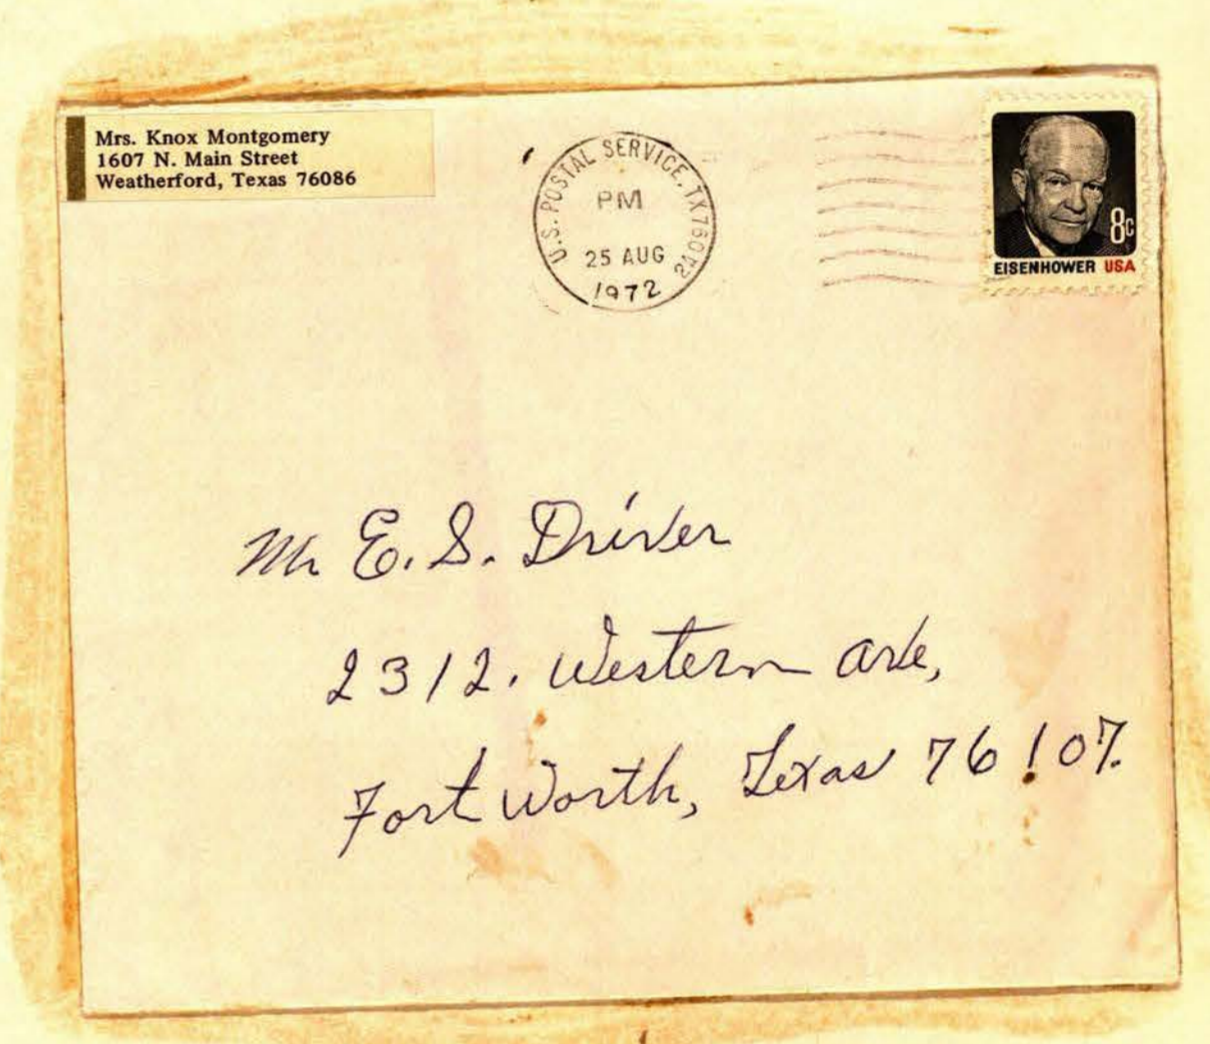 Mrs. Knox Montgomery
1607 N. Main Street
Weatherford, Texas 76086
U.S. POSTAL SERVICE, TX
PM
25 AUG
1972
8c
EISENHOWER USA
Mr E. S. Driver
2312. Western Ave,
Fort Worth, Texas 76107.